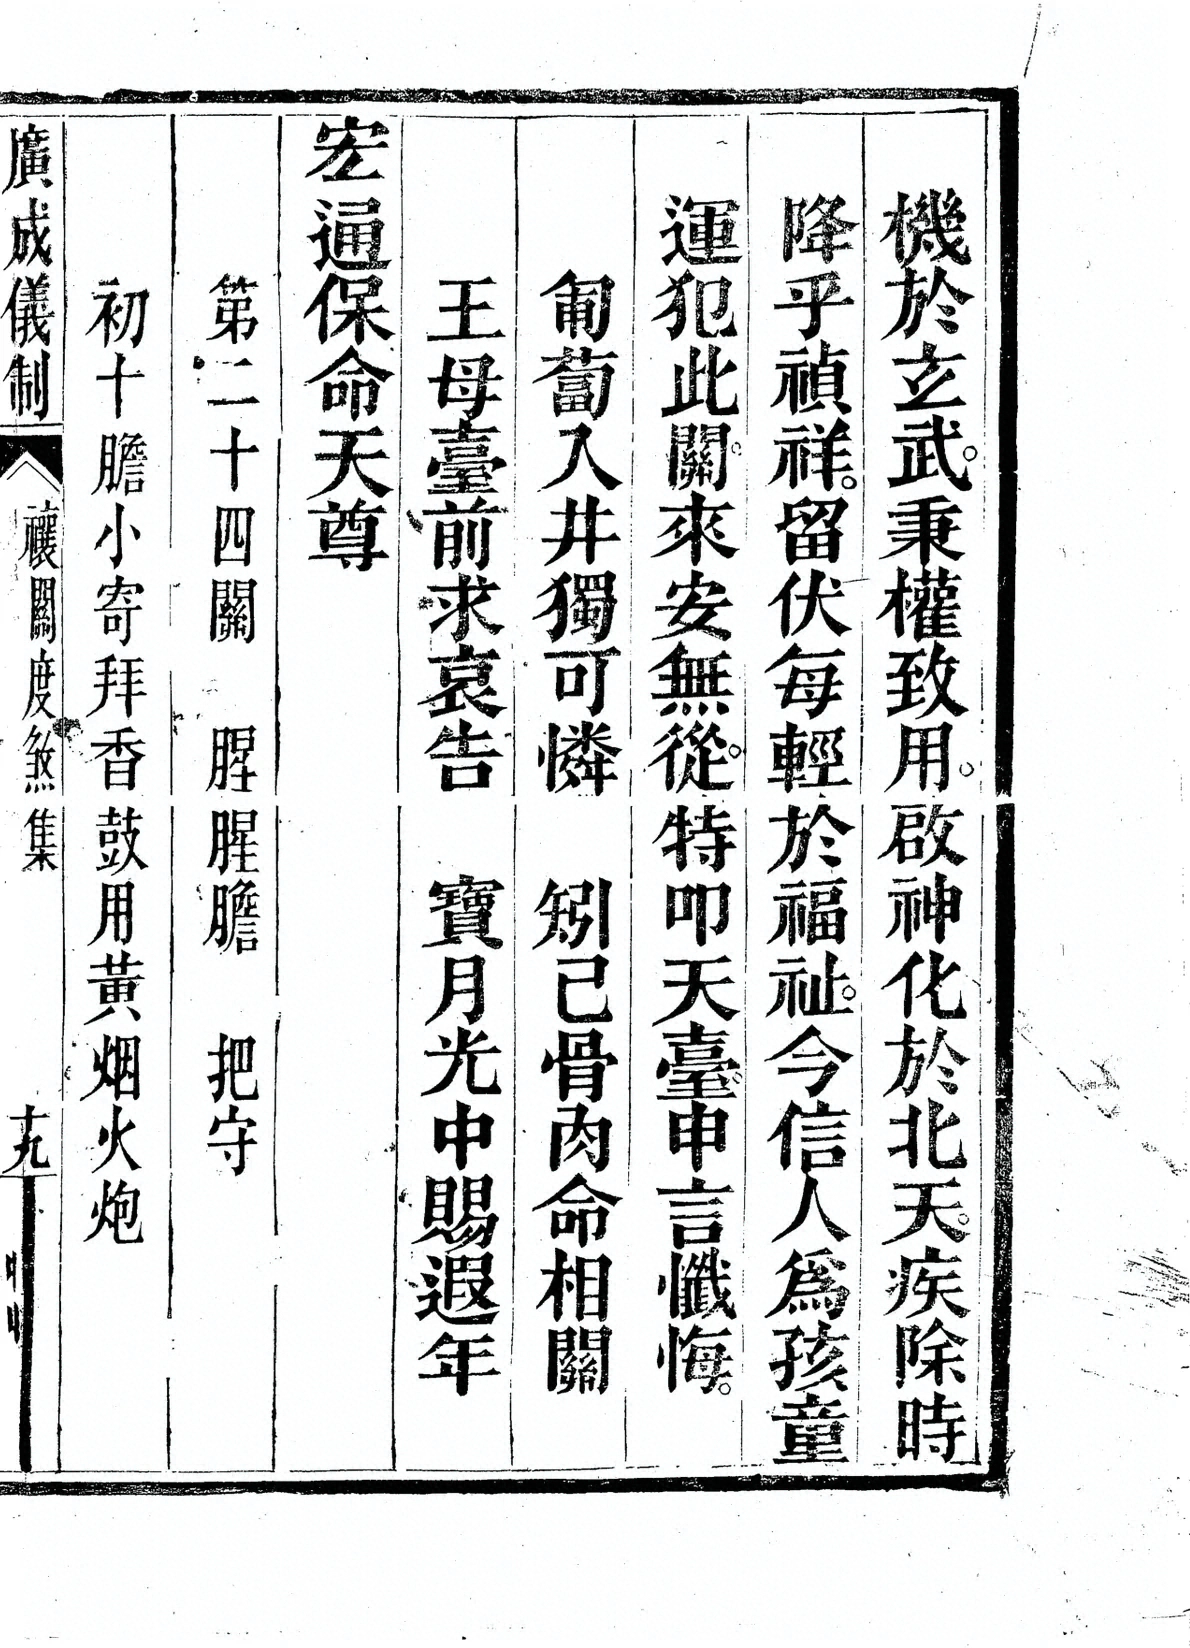 機於玄武。秉權致用。啟神化於北天。疾除時
降乎禎祥。留伏每輕於福祉。今信人爲孩童
運犯此關。來安無從。特叩天臺。申言懺悔。
匍蔔入井獨可憐　矧己骨肉命相關
王母臺前求哀告　寶月光中賜遐年
宏通保命天尊
第二十四關　腥腥膽　把守
初十膽小寄拜香鼓用黃烟火炮
廣成儀制　禳關度煞集　十九